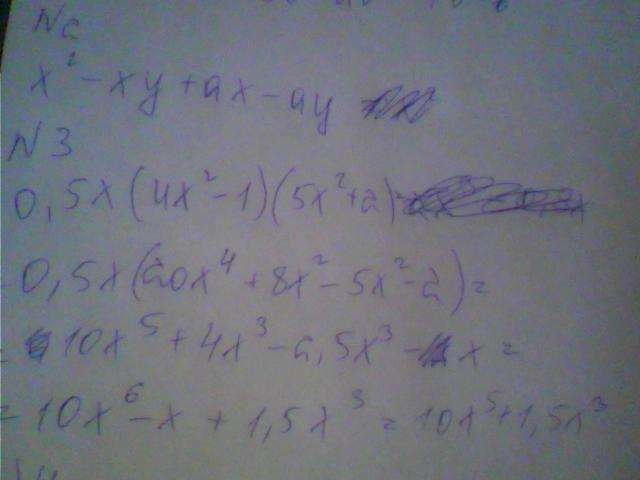 N2
x² - xy + ax - ay
N3
0,5x(4x² - 1)(5x² + 2) =
= 0,5x(20x⁴ + 8x² - 5x² - 2) =
= 10x⁵ + 4x³ - 2,5x³ - x =
= 10x⁶ - x + 1,5x³ = 10x⁵ + 1,5x³